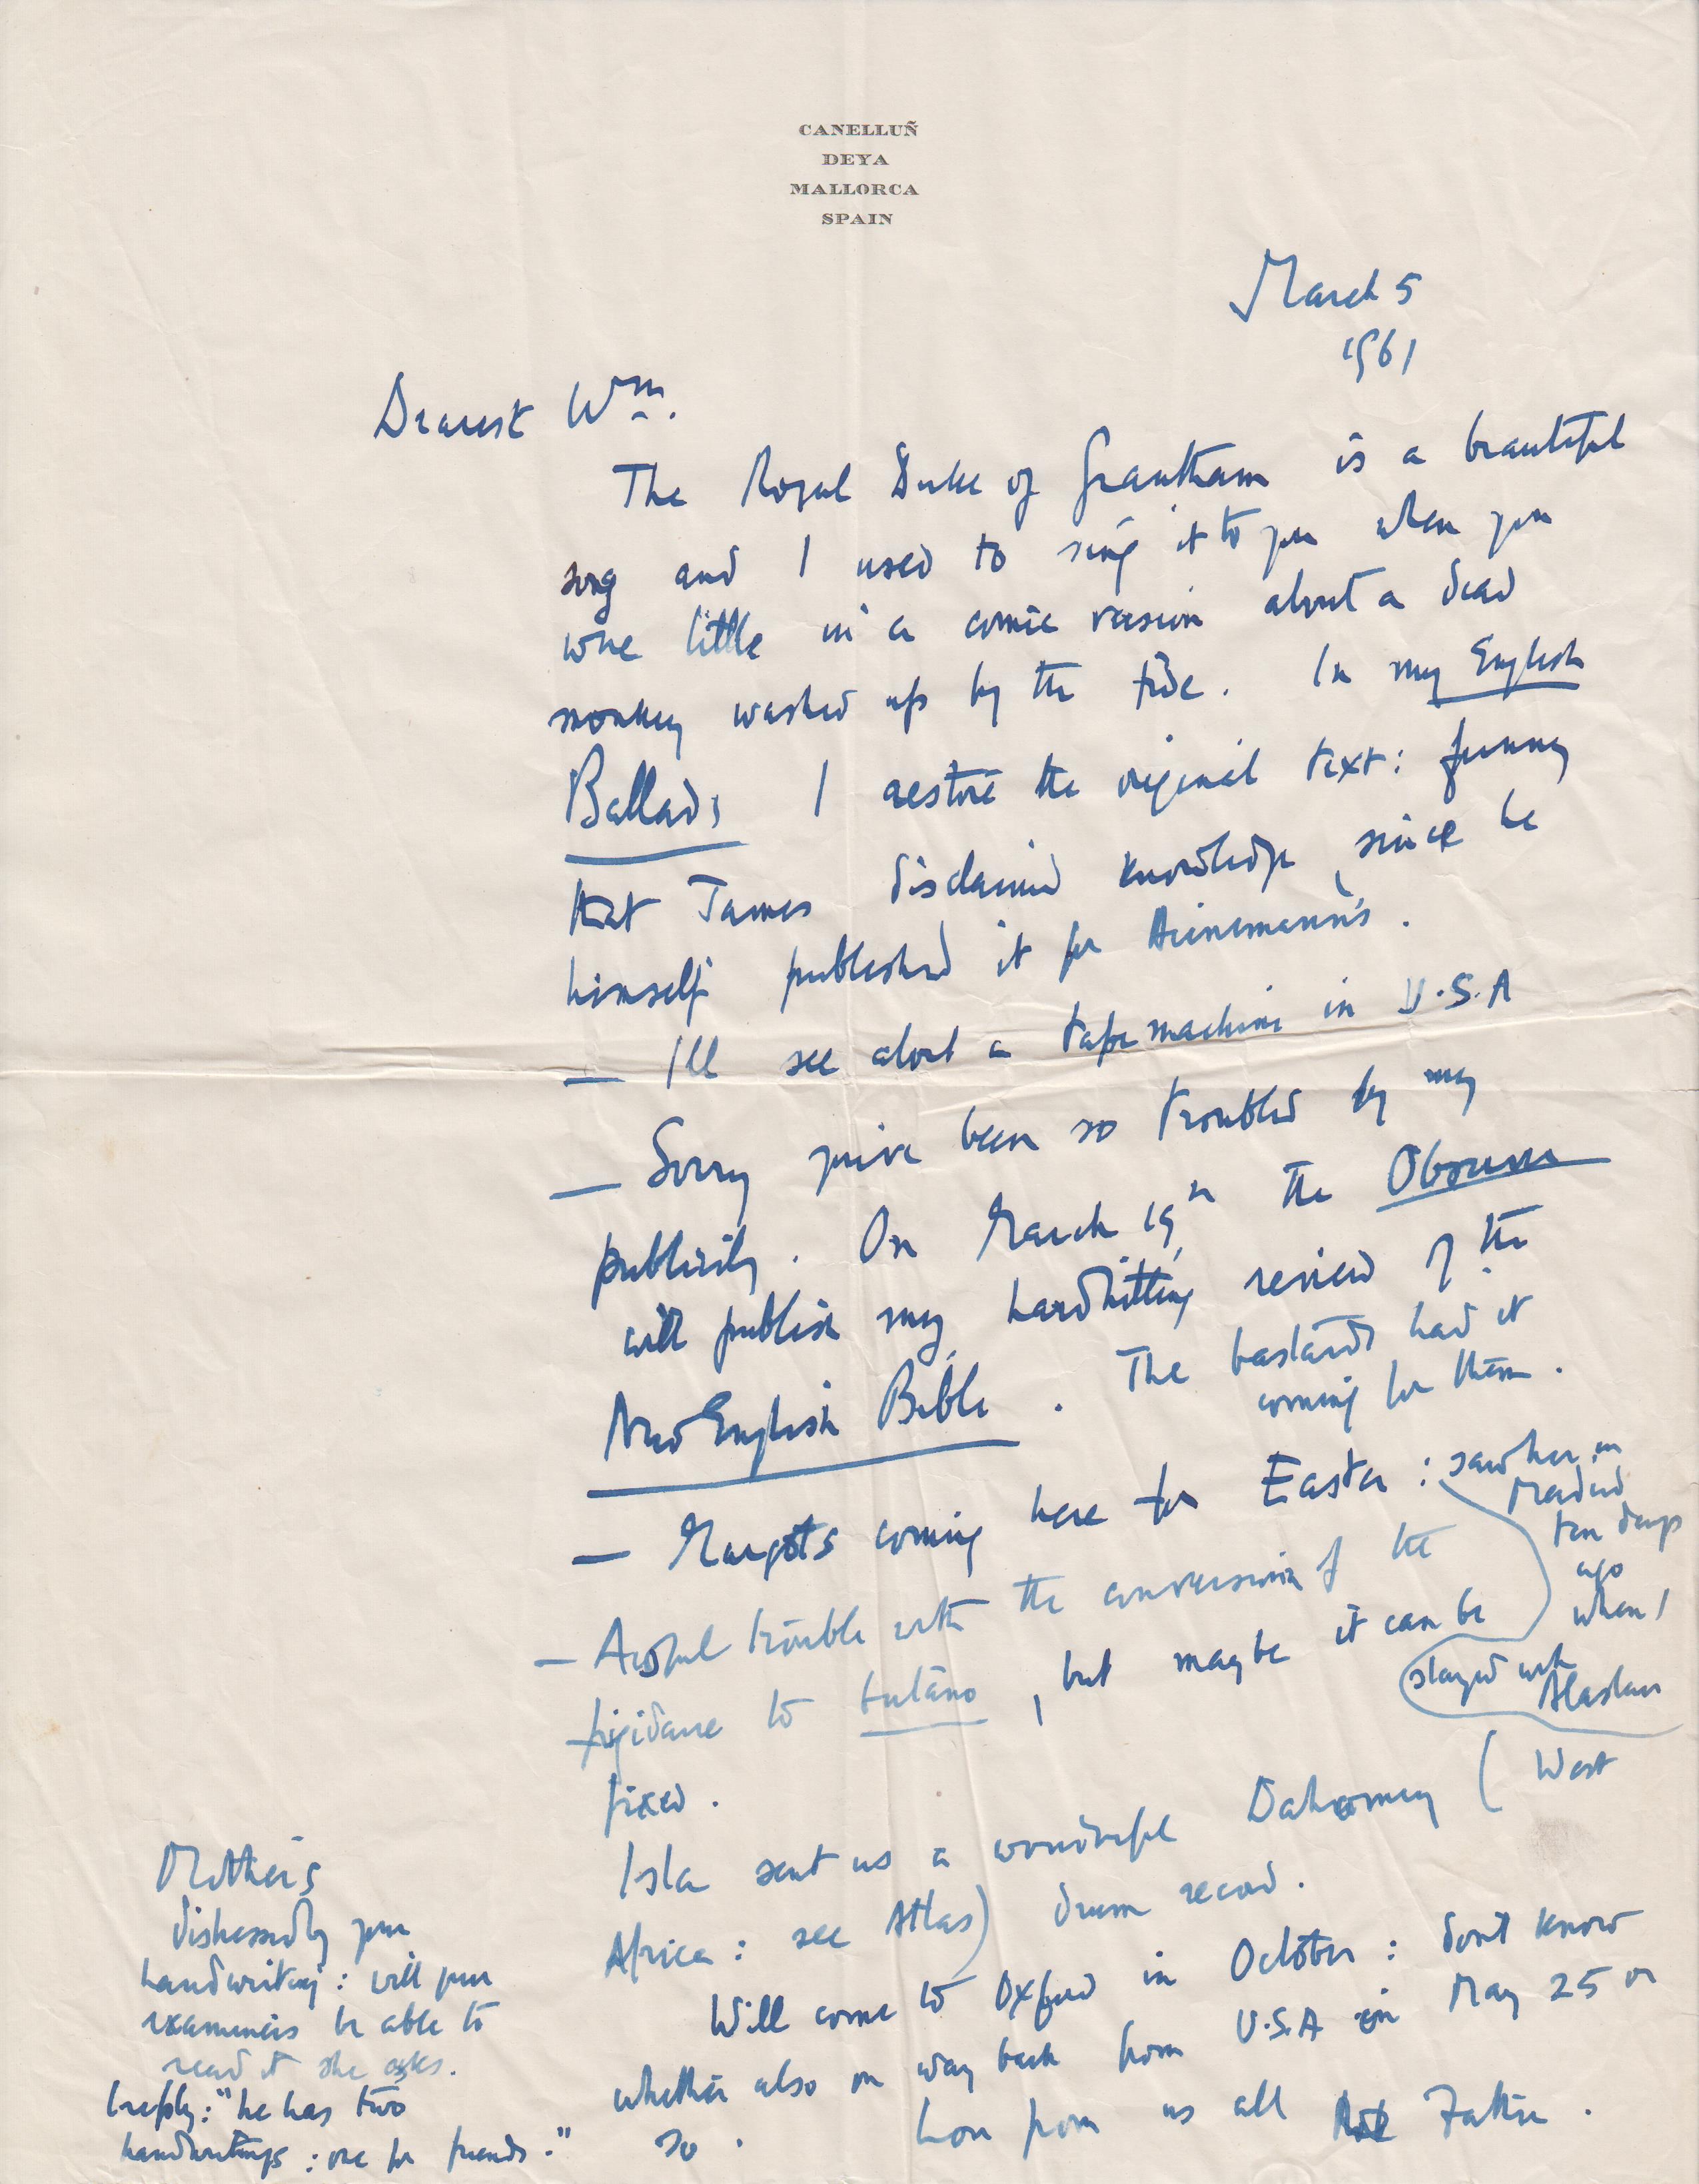 CANELLUÑ
DEYA
MALLORCA
SPAIN
March 5
1961
Dearest Wm.
The Royal Duke of Grantham is a beautiful
song and I used to sing it to you when you
were little in a comic version about a dead
monkey washed up by the tide. In my English
Ballads I restore the original text: funny
that James disclaimed knowledge, since he
himself published it for Heinemann's.
— I'll see about a tape machine in U.S.A
— Sorry you've been so troubled by my
publicity. On March 19th the Observer
will publish my hardhitting review of the
New English Bible. The bastards had it
coming for them.
— Margot's coming here for Easter: saw her in
Madrid
ten days
ago
when I
stayed with
Alastair
— Awful trouble with the conversion of the
frigidaire to butano, but maybe it can be
fixed.
Isla sent us a wonderful Dahomey (West
Africa: see Atlas) drum record.
Will come to Oxford in October: don't know
whether also on way back from U.S.A on May 25 or
so.
Love from us all Father.
Mother's
distressed by your
handwriting: will your
examiners be able to
read it she asks.
I reply: "he has two
handwritings: one for friends."